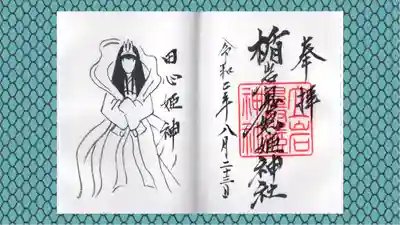 奉拝
楯岩鬼怒姫神社
令和二年八月二十三日
田心姫神